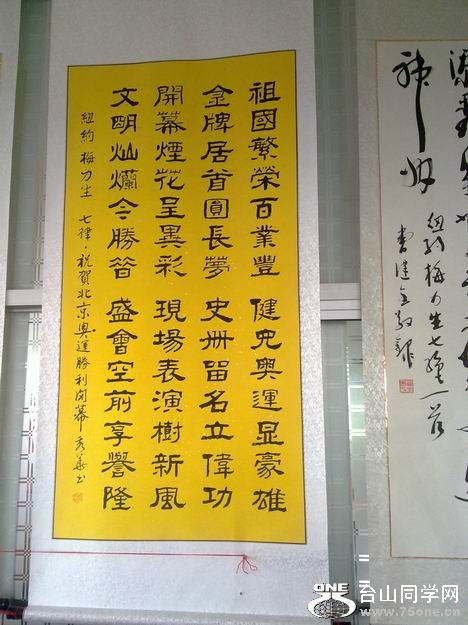 祖國繁榮百業豐 健兒奧運显豪雄
金牌居首圓長夢 史册留名立偉功
開幕煙花呈異彩 現場表演樹新風
文明灿爛今勝昔 盛會空前享譽隆
紐約 梅力生 七律·祝賀北京奥運勝利閉幕 秀華书
神州
紐約梅力生七絕一首
健全敬録
ONE 台山同学网
www.75one.cn